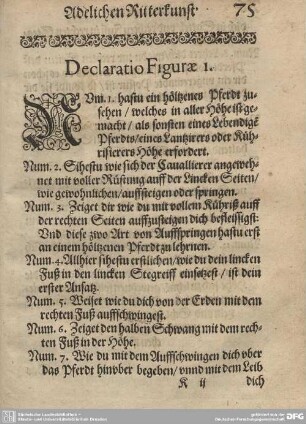 Adelichen Ritterkunst. 75
Declaratio Figuræ 1.
NUm. 1. hastu ein höltzenes Pferdt zu
sehen / welches in aller Höhe ist ge-
macht / als sonsten eines Lebendigẽ
Pferdts / eines Lantzirers oder Küh-
risierers Höhe erfordert.
Num. 2. Sihestu wie sich der Cauallierer angeweh-
net mit voller Rüstung auff der Lincken Seiten/
wie gewohnlichen / auffsteigen oder springen.
Num. 3. Zeiget dir wie du mit vollem Kühriß auff
der rechten Seiten auffzusteigen dich befleissigst:
Vnd diese zwo Art von Auffspringen hastu erst
an einem höltzenen Pferdt zu lehrnen.
Num. 4. Allhier sihestu erstlichen / wie du dein lincken
Fuß in den lincken Stegreiff einsetzest / ist dein
erster Ansatz.
Num. 5. Weiset wie du dich von der Erden mit dem
rechten Fuß auffschwingest.
Num. 6. Zeiget den halben Schwang mit dem rech-
ten Fuß in der Höhe.
Num. 7. Wie du mit dem Auffschwingen dich vber
das Pferdt hinvber begeben / vnnd mit dem Leib
K ij dich